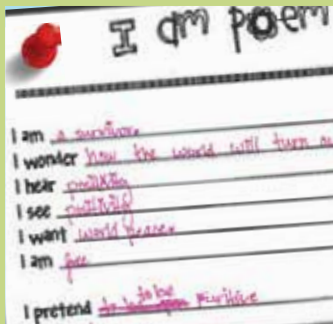 I am poem
I am a survivor
I wonder how the world will turn
I hear
I see
I want world peace
I am free
I pretend to be